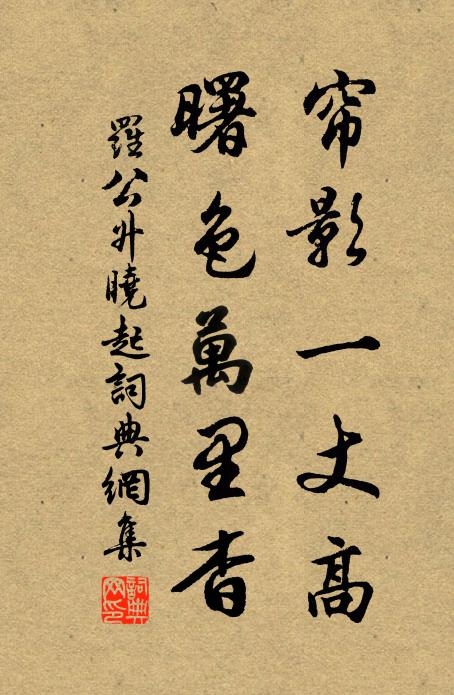 帘影一丈高
曙色萬里杳
羅公升曉起詞典網集
詞典网印